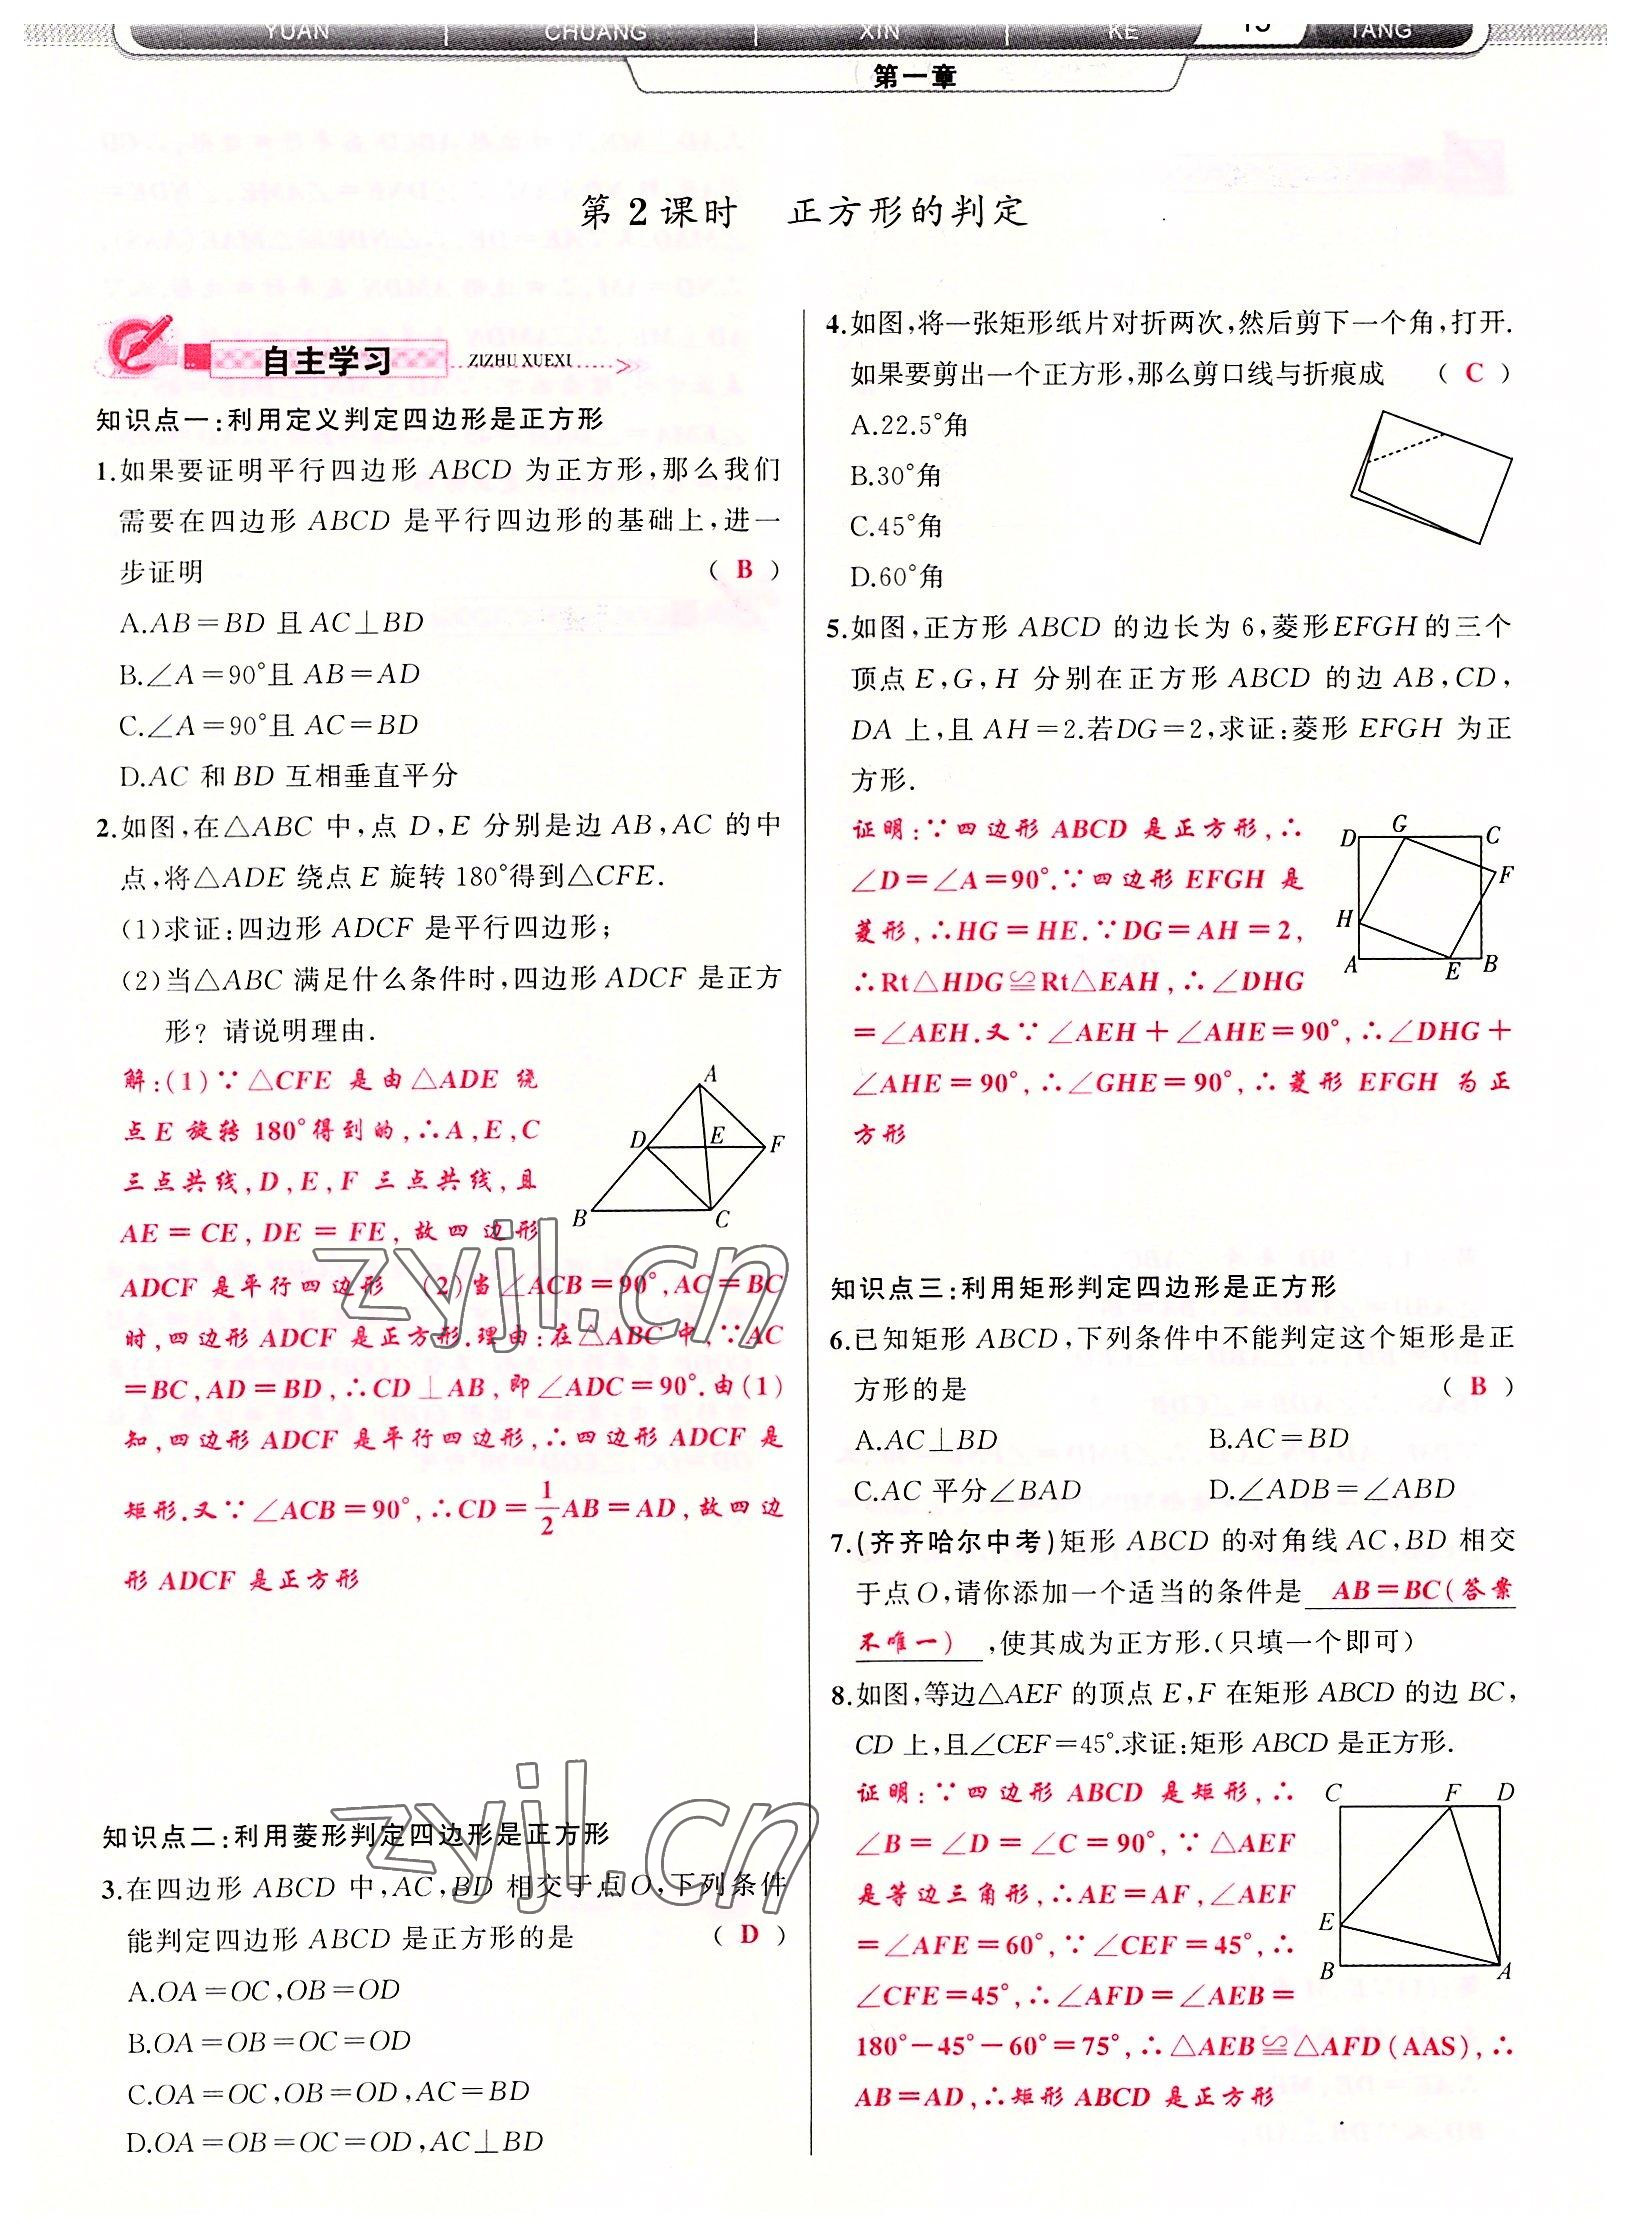 YUAN CHUANG XIN KE TANG
第一章
第2课时 正方形的判定
自主学习 ZIZHU XUEXI
知识点一:利用定义判定四边形是正方形
1.如果要证明平行四边形 ABCD 为正方形,那么我们
需要在四边形 ABCD 是平行四边形的基础上,进一
步证明 ( B )
A.AB=BD 且 AC⊥BD
B.∠A=90°且 AB=AD
C.∠A=90°且 AC=BD
D.AC 和 BD 互相垂直平分
2.如图,在△ABC 中,点 D,E 分别是边 AB,AC 的中
点,将△ADE 绕点 E 旋转 180°得到△CFE.
(1)求证:四边形 ADCF 是平行四边形;
(2)当△ABC 满足什么条件时,四边形 ADCF 是正方
形? 请说明理由.
解:(1)∵△CFE 是由△ADE 绕
点 E 旋转 180°得到的,∴A,E,C
三点共线,D,E,F 三点共线,且
AE=CE,DE=FE,故四边形
ADCF 是平行四边形 (2)当∠ACB=90°,AC=BC
时,四边形 ADCF 是正方形.理由:在△ABC 中,∵AC
=BC,AD=BD,∴CD⊥AB,即∠ADC=90°.由(1)
知,四边形 ADCF 是平行四边形,∴四边形 ADCF 是
矩形.又∵∠ACB=90°,∴CD=1/2AB=AD,故四边
形 ADCF 是正方形
A
D E F
B C
知识点二:利用菱形判定四边形是正方形
3.在四边形 ABCD 中,AC,BD 相交于点O,下列条件
能判定四边形 ABCD 是正方形的是 ( D )
A.OA=OC,OB=OD
B.OA=OB=OC=OD
C.OA=OC,OB=OD,AC=BD
D.OA=OB=OC=OD,AC⊥BD
4.如图,将一张矩形纸片对折两次,然后剪下一个角,打开.
如果要剪出一个正方形,那么剪口线与折痕成 ( C )
A.22.5°角
B.30°角
C.45°角
D.60°角
5.如图,正方形 ABCD 的边长为 6,菱形EFGH的三个
顶点 E,G,H 分别在正方形 ABCD 的边 AB,CD,
DA 上,且 AH=2.若DG=2,求证:菱形 EFGH 为正
方形.
证明:∵四边形 ABCD 是正方形,∴
∠D=∠A=90°.∵四边形 EFGH 是
菱形,∴HG=HE.∵DG=AH=2,
∴Rt△HDG≌Rt△EAH,∴∠DHG
=∠AEH.又∵∠AEH+∠AHE=90°,∴∠DHG+
∠AHE=90°,∴∠GHE=90°,∴菱形 EFGH 为正
方形
D G C
F
H
A E B
知识点三:利用矩形判定四边形是正方形
6.已知矩形 ABCD,下列条件中不能判定这个矩形是正
方形的是 ( B )
A.AC⊥BD B.AC=BD
C.AC 平分∠BAD D.∠ADB=∠ABD
7.(齐齐哈尔中考)矩形 ABCD 的对角线 AC,BD 相交
于点O,请你添加一个适当的条件是 AB=BC(答案
不唯一) ,使其成为正方形.(只填一个即可)
8.如图,等边△AEF 的顶点 E,F 在矩形 ABCD 的边 BC,
CD 上,且∠CEF=45°.求证:矩形 ABCD 是正方形.
证明:∵四边形 ABCD 是矩形,∴
∠B=∠D=∠C=90°,∵△AEF
是等边三角形,∴AE=AF,∠AEF
=∠AFE=60°,∵∠CEF=45°,∴
∠CFE=45°,∴∠AFD=∠AEB=
180°-45°-60°=75°,∴△AEB≌△AFD(AAS),∴
AB=AD,∴矩形 ABCD 是正方形
C F D
E
B A
zyjl.cn
zyjl.cn